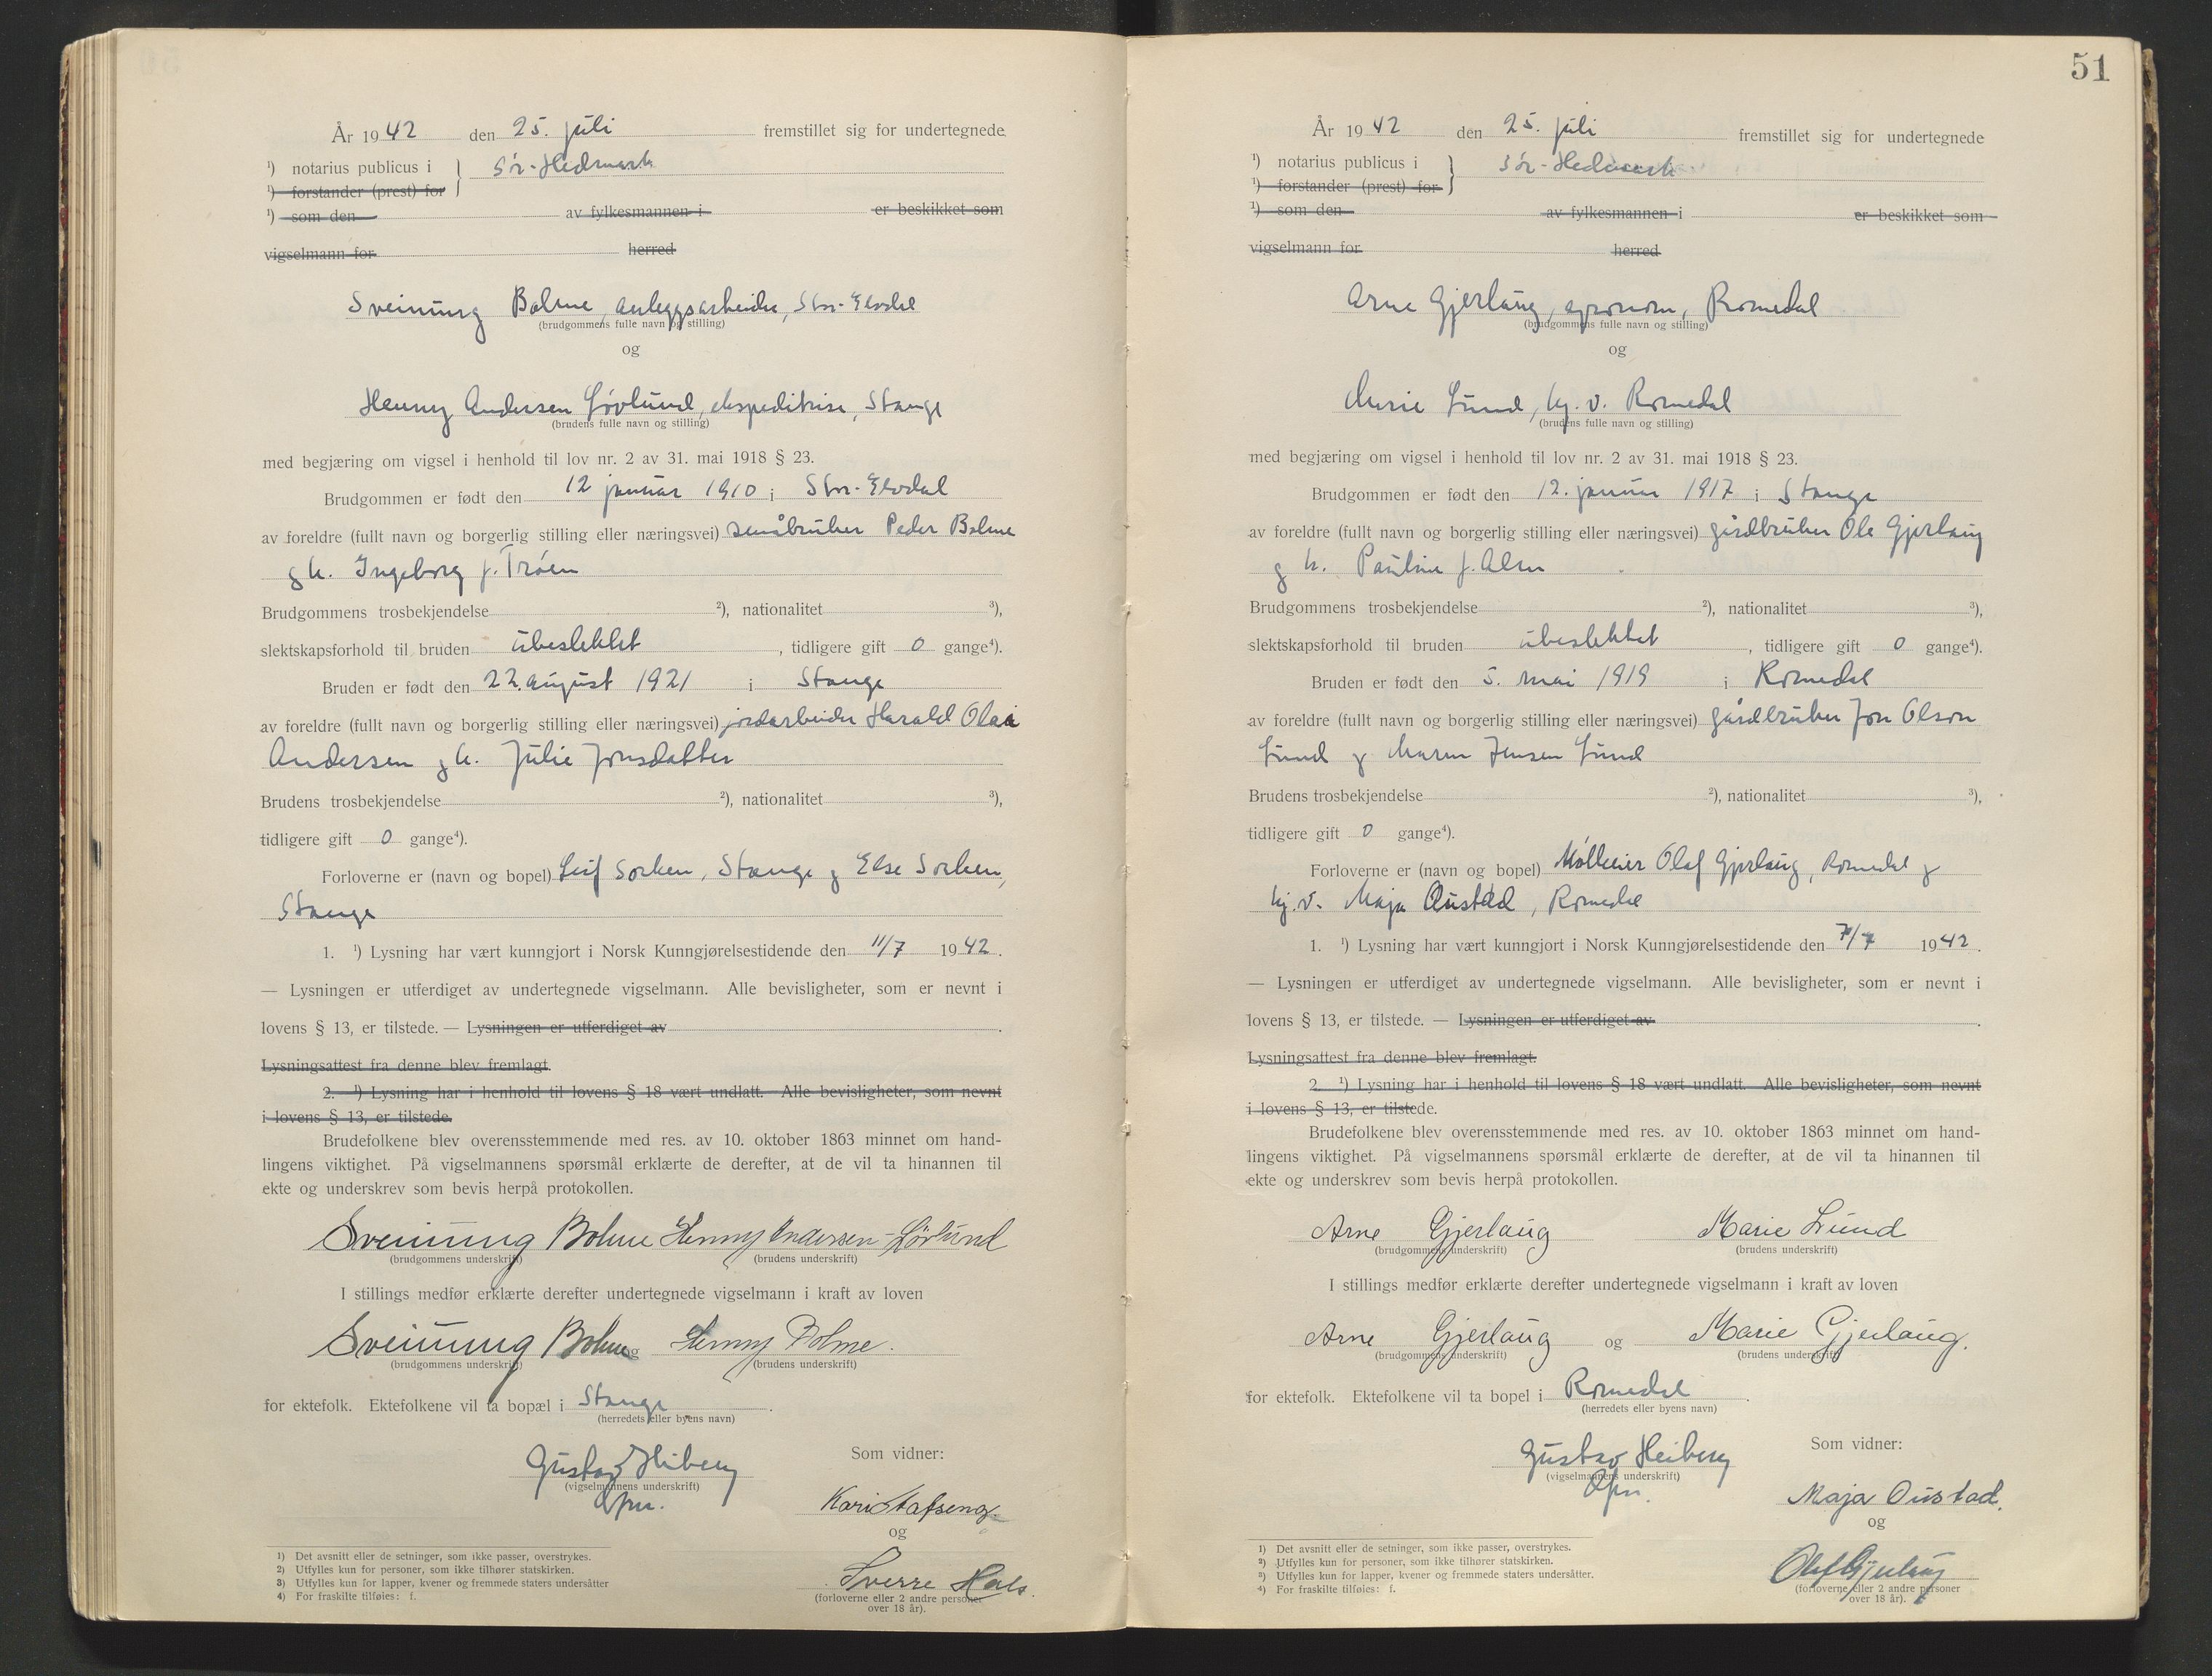 År 1942 den 25. juli fremstillet sig for undertegnede
¹) notarius publicus i } Sør-Hedmark
¹) forstander (prest) for
¹) som den av fylkesmannen i er beskikket som
vigselmann for herred
Sveinung Bolme, anleggsarbeider, Stor-Elvdal
(brudgommens fulle navn og stilling)
og
Henny Andersen Løvlund, ekspeditrise, Stange
(brudens fulle navn og stilling)
med begjæring om vigsel i henhold til lov nr. 2 av 31. mai 1918 § 23.
Brudgommen er født den 12 januar 1910 i Stor-Elvdal
av foreldre (fullt navn og borgerlig stilling eller næringsvei) småbruker Peder Bolme
og h. Ingeborg f. Trøen
Brudgommens trosbekjendelse ²), nationalitet ³),
slektskapsforhold til bruden ubeslektet, tidligere gift 0 gange⁴).
Bruden er født den 22. august 1921 i Stange
av foreldre (fullt navn og borgerlig stilling eller næringsvei) jordarbeider Harald Olai
Andersen og h. Julie Jonsdatter
Brudens trosbekjendelse ²), nationalitet ³),
tidligere gift 0 gange⁴).
Forloverne er (navn og bopel) Leif Sorken, Stange og Else Sorken,
Stange
1. ¹) Lysning har vært kunngjort i Norsk Kunngjørelsestidende den 11/7 1942.
— Lysningen er utferdiget av undertegnede vigselmann. Alle bevisligheter, som er nevnt i
lovens § 13, er tilstede. — Lysningen er utferdiget av .
Lysningsattest fra denne blev fremlagt.
2. ¹) Lysning har i henhold til lovens § 18 vært undlatt. Alle bevisligheter, som nevnt
i lovens § 13, er tilstede.
Brudefolkene blev overensstemmende med res. av 10. oktober 1863 minnet om hand-
lingens viktighet. På vigselmannens spørsmål erklærte de derefter, at de vil ta hinannen til
ekte og underskrev som bevis herpå protokollen.
Sveinung Bolme Henny Andersen-Lövlund
(brudgommens underskrift) (brudens underskrift)
I stillings medfør erklærte derefter undertegnede vigselmann i kraft av loven
Sveinung Bolme og Henny Bolme.
(brudgommens underskrift) (brudens underskrift)
for ektefolk. Ektefolkene vil ta bopæl i Stange.
(herredets eller byens navn)
Som vidner:
Gustav Heiberg
(vigselmannens underskrift)
Kari
og
Sverre Hals.
(forloverne eller 2 andre personer
over 18 år).
1) Det avsnitt eller de setninger, som ikke passer, overstrykes.
2) Utfylles kun for personer, som ikke tilhører statskirken.
3) Utfylles kun for lapper, kvener og fremmede staters undersåtter
4) For fraskilte tilføies: f.
51
År 1942 den 25. juli fremstillet sig for undertegnede
¹) notarius publicus i } Sør-Hedmark
¹) forstander (prest) for
¹) som den av fylkesmannen i er beskikket som
vigselmann for herred
Arne Gjerlaug, agronom, Romedal
(brudgommens fulle navn og stilling)
og
Marie Lund, hj. v. Romedal
(brudens fulle navn og stilling)
med begjæring om vigsel i henhold til lov nr. 2 av 31. mai 1918 § 23.
Brudgommen er født den 12. januar 1917 i Stange
av foreldre (fullt navn og borgerlig stilling eller næringsvei) gårdbruker Ole Gjerlaug
og h. Pauline f. Alm
Brudgommens trosbekjendelse ²), nationalitet ³),
slektskapsforhold til bruden ubeslektet, tidligere gift 0 gange⁴).
Bruden er født den 5. mai 1919 i Romedal
av foreldre (fullt navn og borgerlig stilling eller næringsvei) gårdbruker Jon Olson
Lund og Maren Jensen Lund
Brudens trosbekjendelse ²), nationalitet ³),
tidligere gift 0 gange⁴).
Forloverne er (navn og bopel) Olaf Gjerlaug, Romedal og
hj. v. Maja Oustad, Romedal
1. ¹) Lysning har vært kunngjort i Norsk Kunngjørelsestidende den 7/7 1942.
— Lysningen er utferdiget av undertegnede vigselmann. Alle bevisligheter, som er nevnt i
lovens § 13, er tilstede. — Lysningen er utferdiget av .
Lysningsattest fra denne blev fremlagt.
2. ¹) Lysning har i henhold til lovens § 18 vært undlatt. Alle bevisligheter, som nevnt
i lovens § 13, er tilstede.
Brudefolkene blev overensstemmende med res. av 10. oktober 1863 minnet om hand-
lingens viktighet. På vigselmannens spørsmål erklærte de derefter, at de vil ta hinannen til
ekte og underskrev som bevis herpå protokollen.
Arne Gjerlaug Marie Lund
(brudgommens underskrift) (brudens underskrift)
I stillings medfør erklærte derefter undertegnede vigselmann i kraft av loven
Arne Gjerlaug og Marie Gjerlaug.
(brudgommens underskrift) (brudens underskrift)
for ektefolk. Ektefolkene vil ta bopel i Romedal.
(herredets eller byens navn)
Som vidner:
Gustav Heiberg
(vigselmannens underskrift)
Maja Oustad.
og
Olaf Gjerlaug
(forloverne eller 2 andre personer
over 18 år).
1) Det avsnitt eller de setninger, som ikke passer, overstrykes.
2) Utfylles kun for personer, som ikke tilhører statskirken.
3) Utfylles kun for lapper, kvener og fremmede staters undersåtter.
4) For fraskilte tilføies: f.